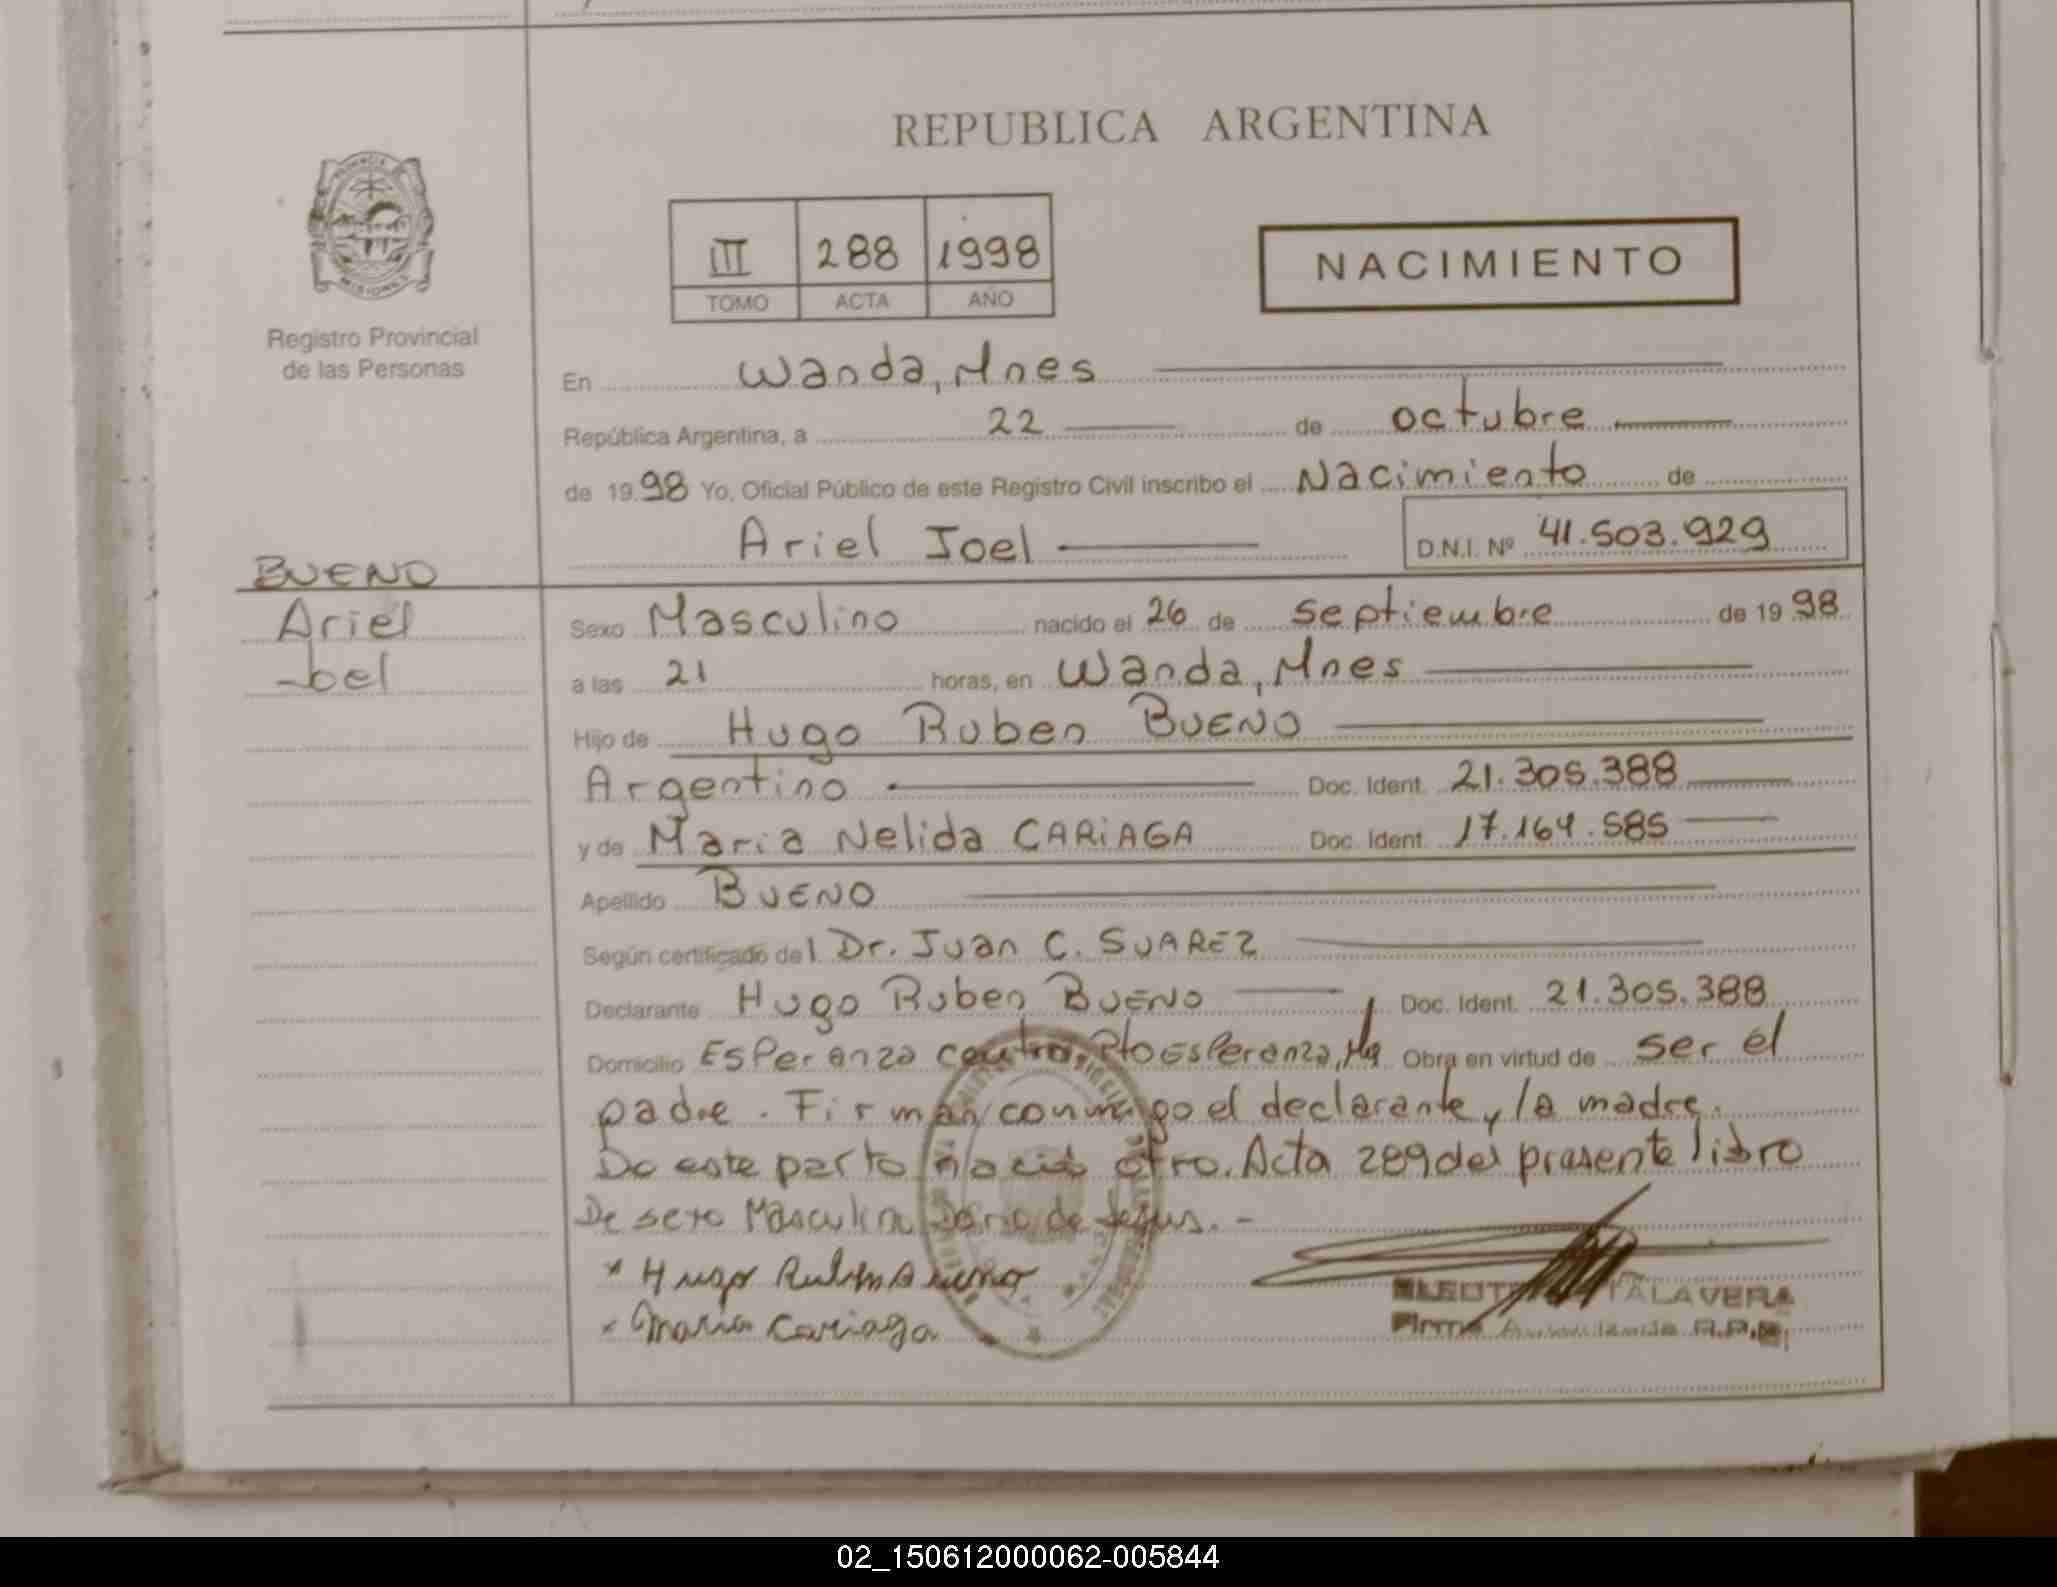 REPUBLICA ARGENTINA
PROVINCIA DE
MISIONES
Registro Provincial
de las Personas
III 288 1998
TOMO ACTA AÑO
NACIMIENTO
En Wanda, Mnes
República Argentina, a 22 de octubre
de 1998 Yo, Oficial Público de este Registro Civil inscribo el Nacimiento de
Ariel Joel D.N.I. Nº 41.503.929
BUENO
Ariel
Joel
Sexo Masculino nacido el 26 de septiembre de 1998
a las 21 horas, en Wanda, Mnes
Hijo de Hugo Ruben BUENO
Argentino Doc. Ident. 21.305.388
y de Maria Nelida CARiAGA Doc. Ident. 17.164.585
Apellido BUENO
Según certificado del Dr. Juan C. SUAREZ
Declarante Hugo Ruben BUENO Doc. Ident. 21.305.388
Domicilio Esperanza centro, Pto Esperanza, Obra en virtud de ser el
padre. Firman conmigo el declarante y la madre.
De este parto nació otro. Acta 289 del presente libro
De sexo Masculino Dario de Jesus. -
x Hugo Ruben Bueno
x Maria Cariaga
TALAVERA
Firma Autorizada R.P.P.
02_150612000062-005844